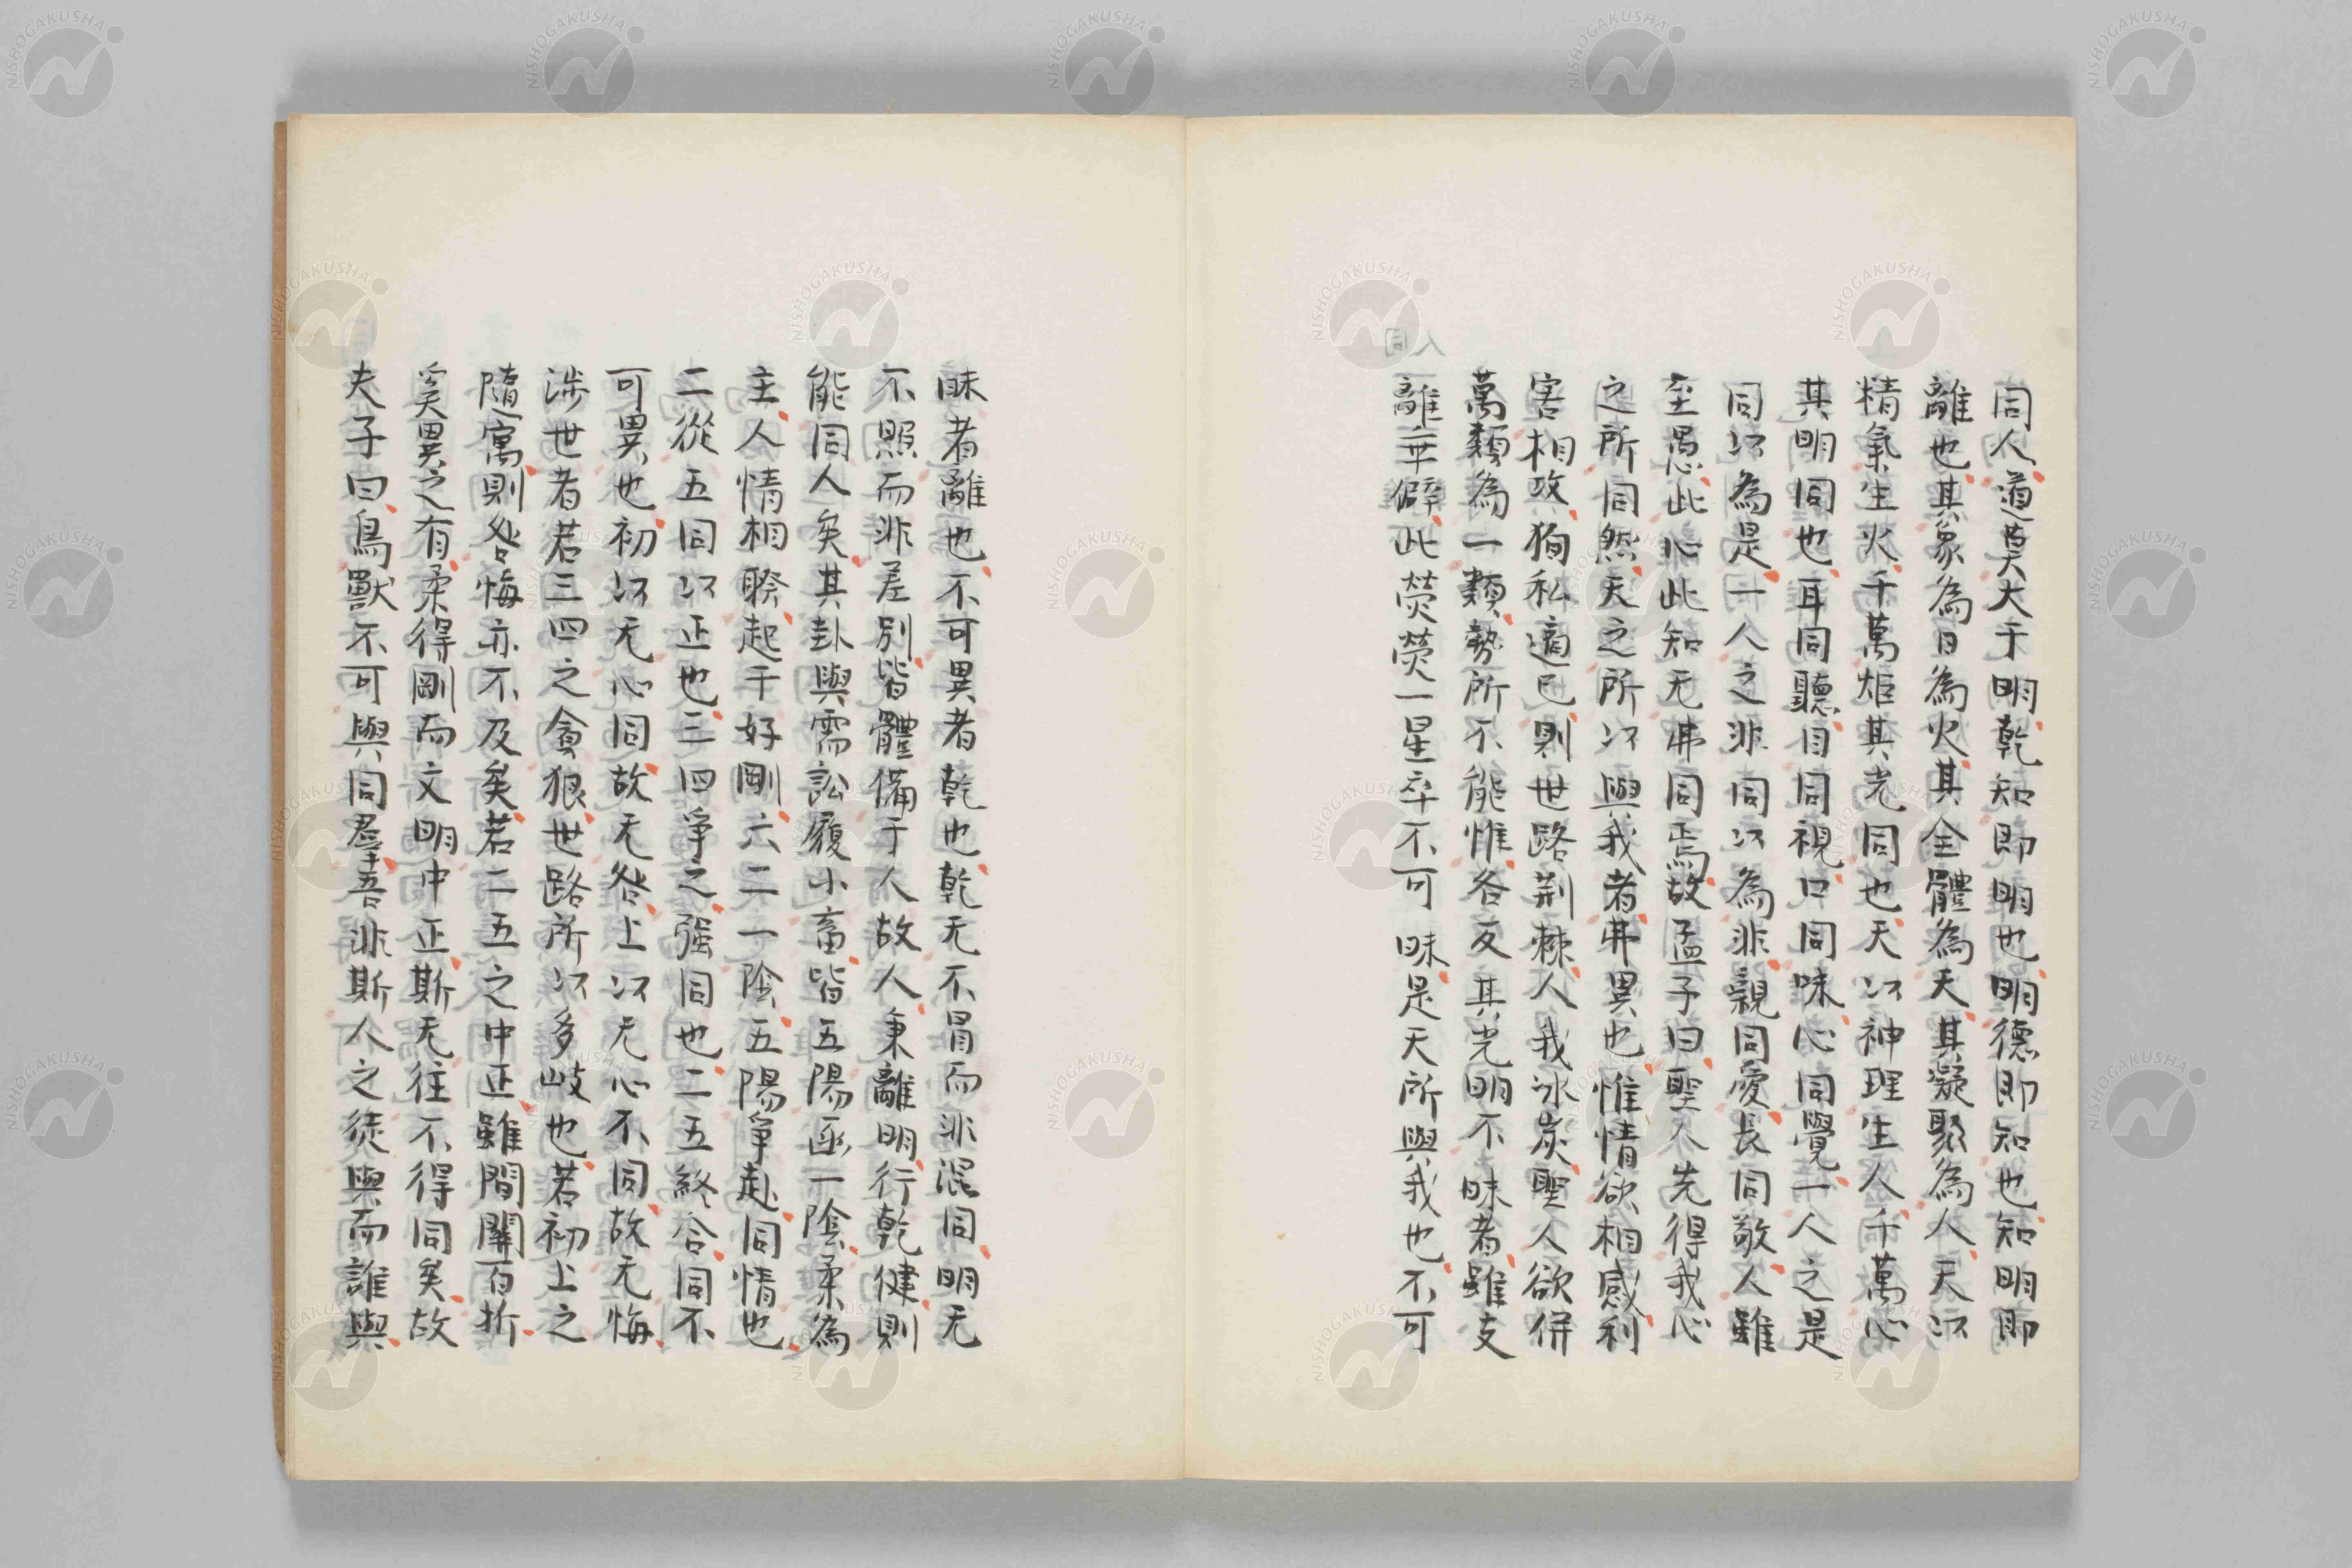 同人道莫大于明乾知即明也明德即知也知明即
離也其象為日為火其全體為天其凝聚為人天以
精氣生火千萬炬其光同也天以神理生人千萬心
其明同也耳同聽目同視口同味心同覺一人之是
同以為是一人之非同以為非親同愛長同敬人雖
至愚此心此知无弗同焉故孟子曰聖人先得我心
之所同然天之所以與我者弗異也惟情欲相感利
害相攻狥私適已則世路荆棘人我冰炭聖人欲併
萬類為一類勢所不能惟各反其光明不昧者雖支
離乖僻此熒熒一星卒不可昧是天所與我也不可
昧者離也不可異者乾也乾无不冒而非混同明无
不照而非差別皆體備于人故人秉離明行乾健則
能同人矣其卦與需訟履小畜皆五陽函一陰柔為
主人情相睽起于好剛六二一陰五陽爭赴同情也
二從五同以正也三四爭之強同也二五終合同不
可異也初以无心同故无咎上以无心不同故无悔
涉世者若三四之貪狠世路所以多岐也若初上之
隨寓則咎悔亦不及矣若二五之中正雖間關百折
奚異之有柔得剛而文明中正斯无往不得同矣故
夫子曰鳥獸不可與同羣吾非斯人之徒與而誰與
NISHOGAKUSHA